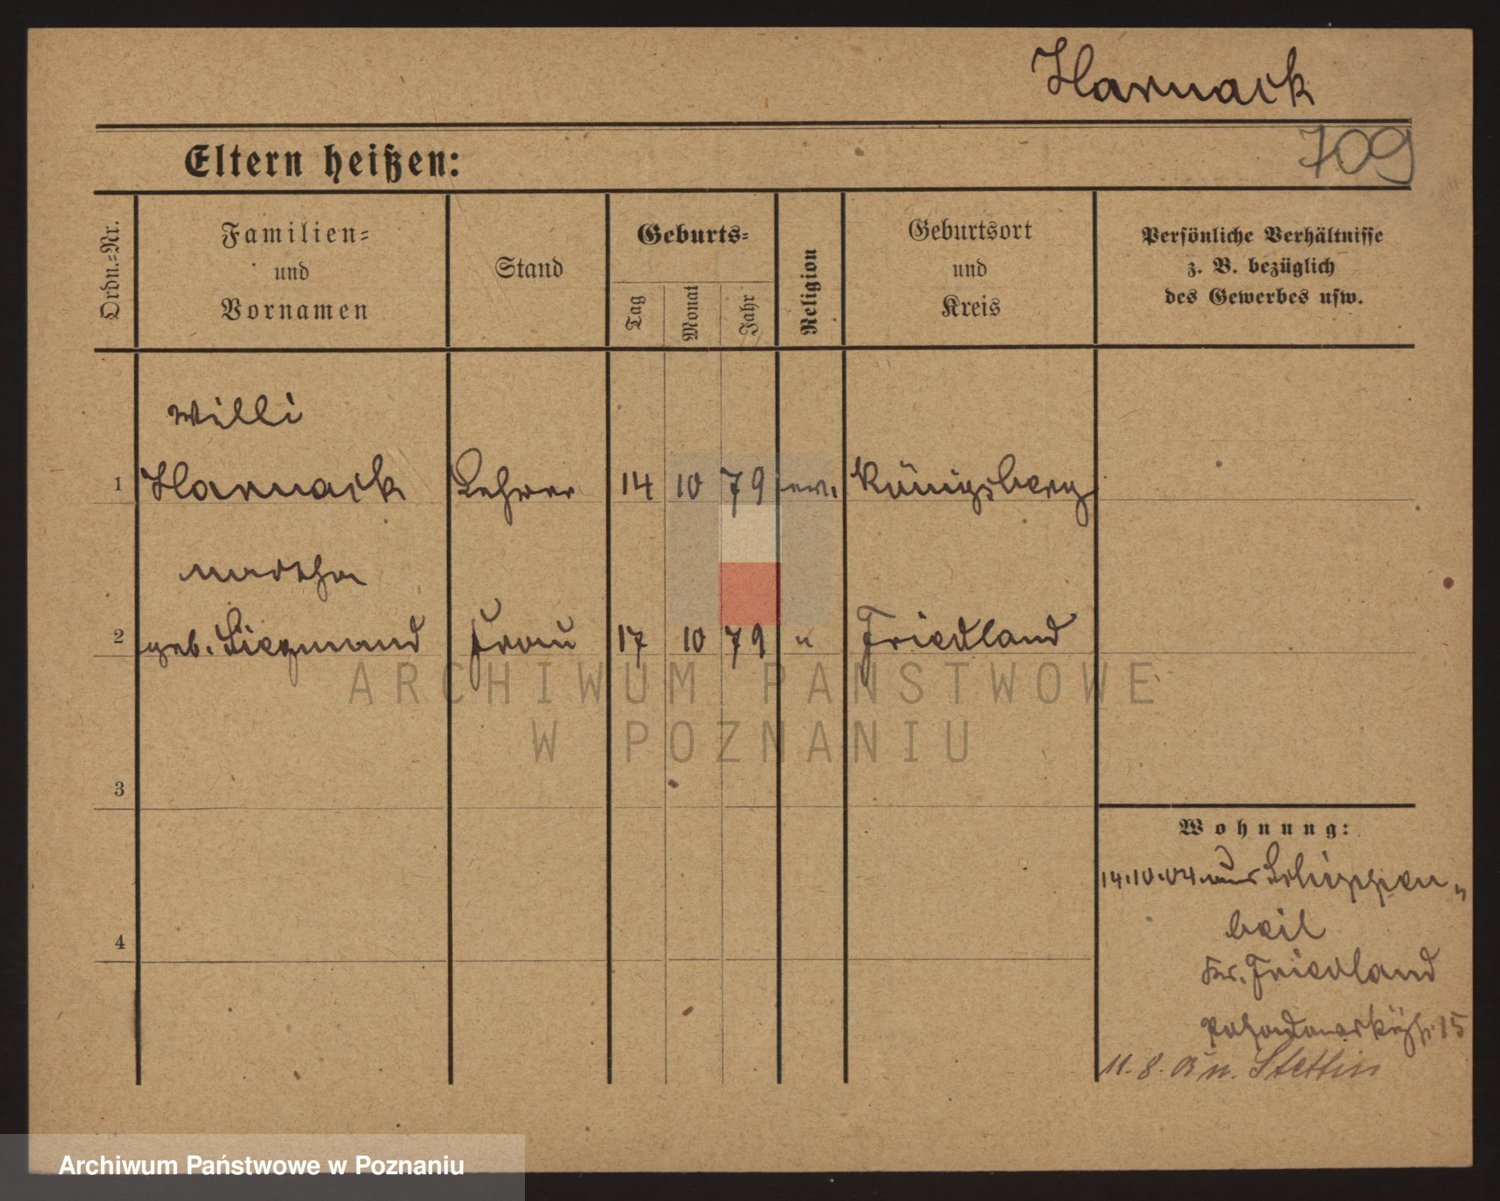 Harnack
709
Eltern heißen:
Ordn.-Nr.
Familien-
und
Vornamen
Stand
Geburts-
Tag
Monat
Jahr
Religion
Geburtsort
und
Kreis
Persönliche Verhältnisse
z. B. bezüglich
des Gewerbes usw.
Willi
1 Harnack Lehrer 14 10 79 ev. Königsberg
Martha
2 geb. Siegmund Frau 17 10 79 " Friedland
3
4
Wohnung:
14.10.04 aus Schippen-
beil
Kr. Friedland
15
11.8.05 n. Stettin
ARCHIWUM PAŃSTWOWE
W POZNANIU
Archiwum Państwowe w Poznaniu